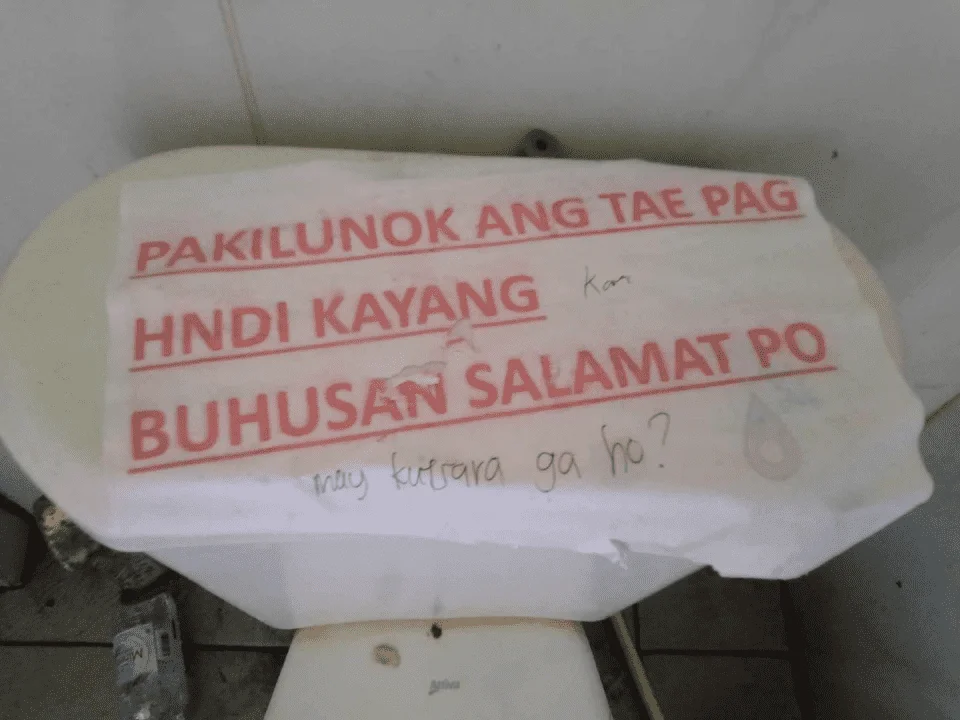 PAKILUNOK ANG TAE PAG
HNDI KAYANG
BUHUSAN SALAMAT PO
may kutsara ga ho?